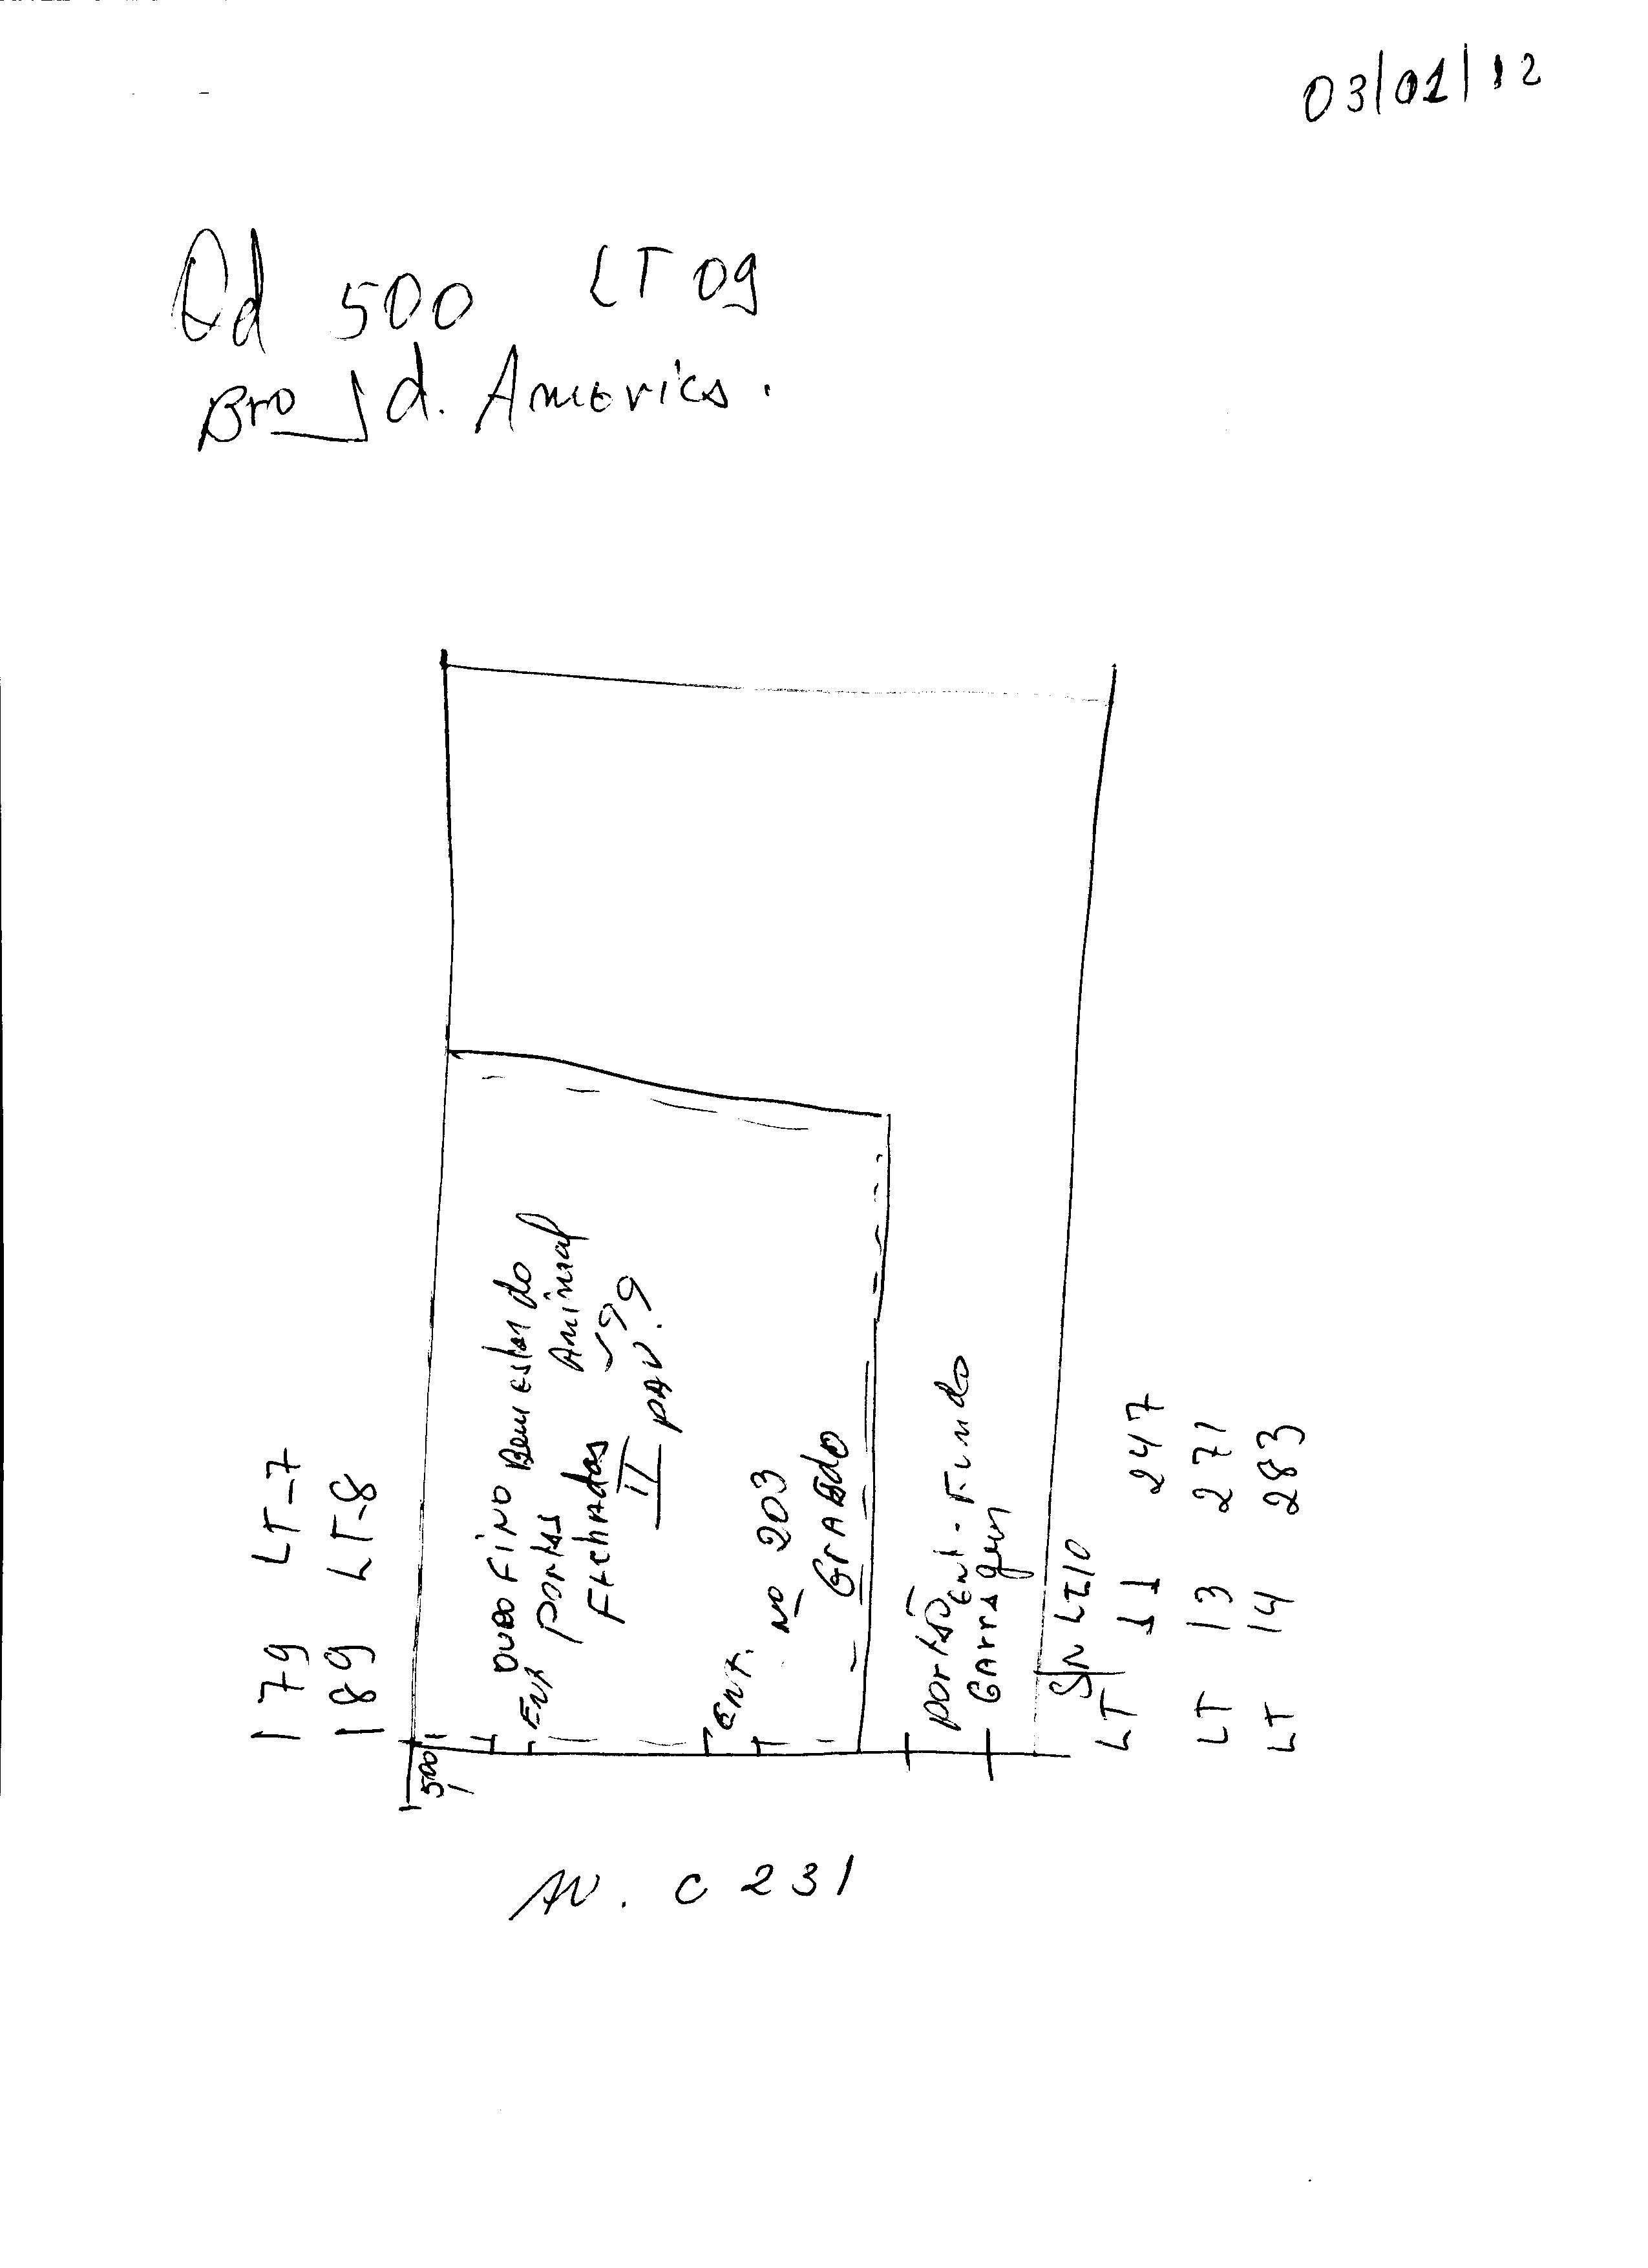 03/01/12
Qd 500 LT 09
Bro Jd. America.
179 LT-7
189 LT-8
500
Ent
OURO FINO Bem estar do
Animal
portas
Fechadas
II pAV.
Ent.
Nº 203
GrAdo
portão
Ent. Fundo
GArrAgem
SN LT10
LT 11 247
LT 13 271
LT 14 283
AV. C 231